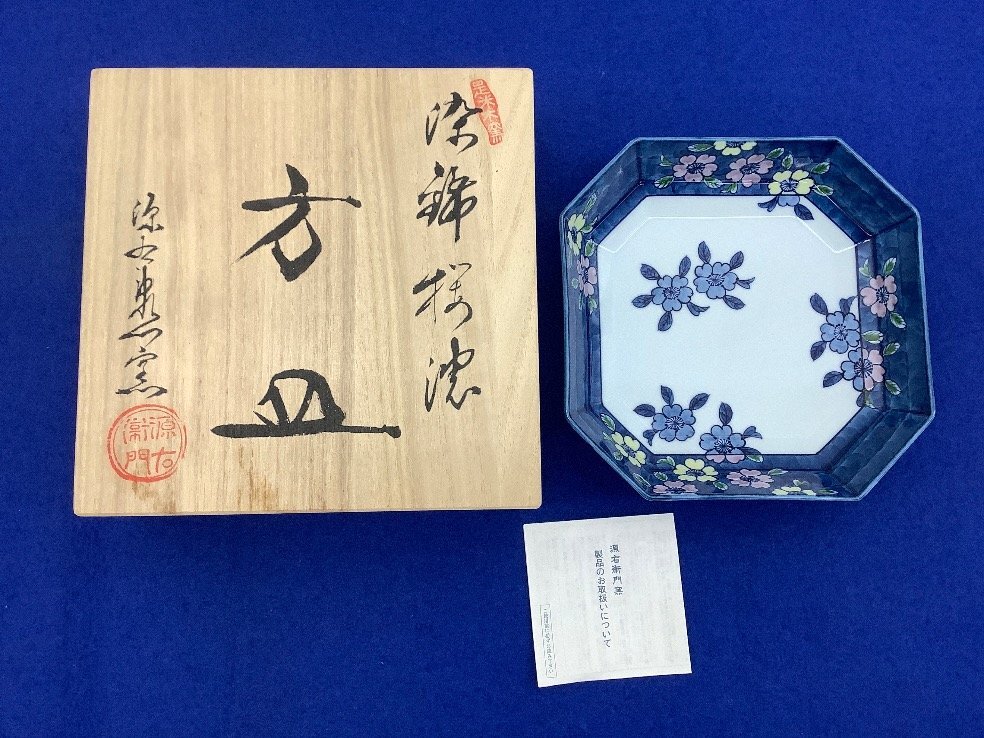 染錦桜濃
方皿
源右衛門窯
源右衛門
源右衛門窯
製品のお取扱いについて